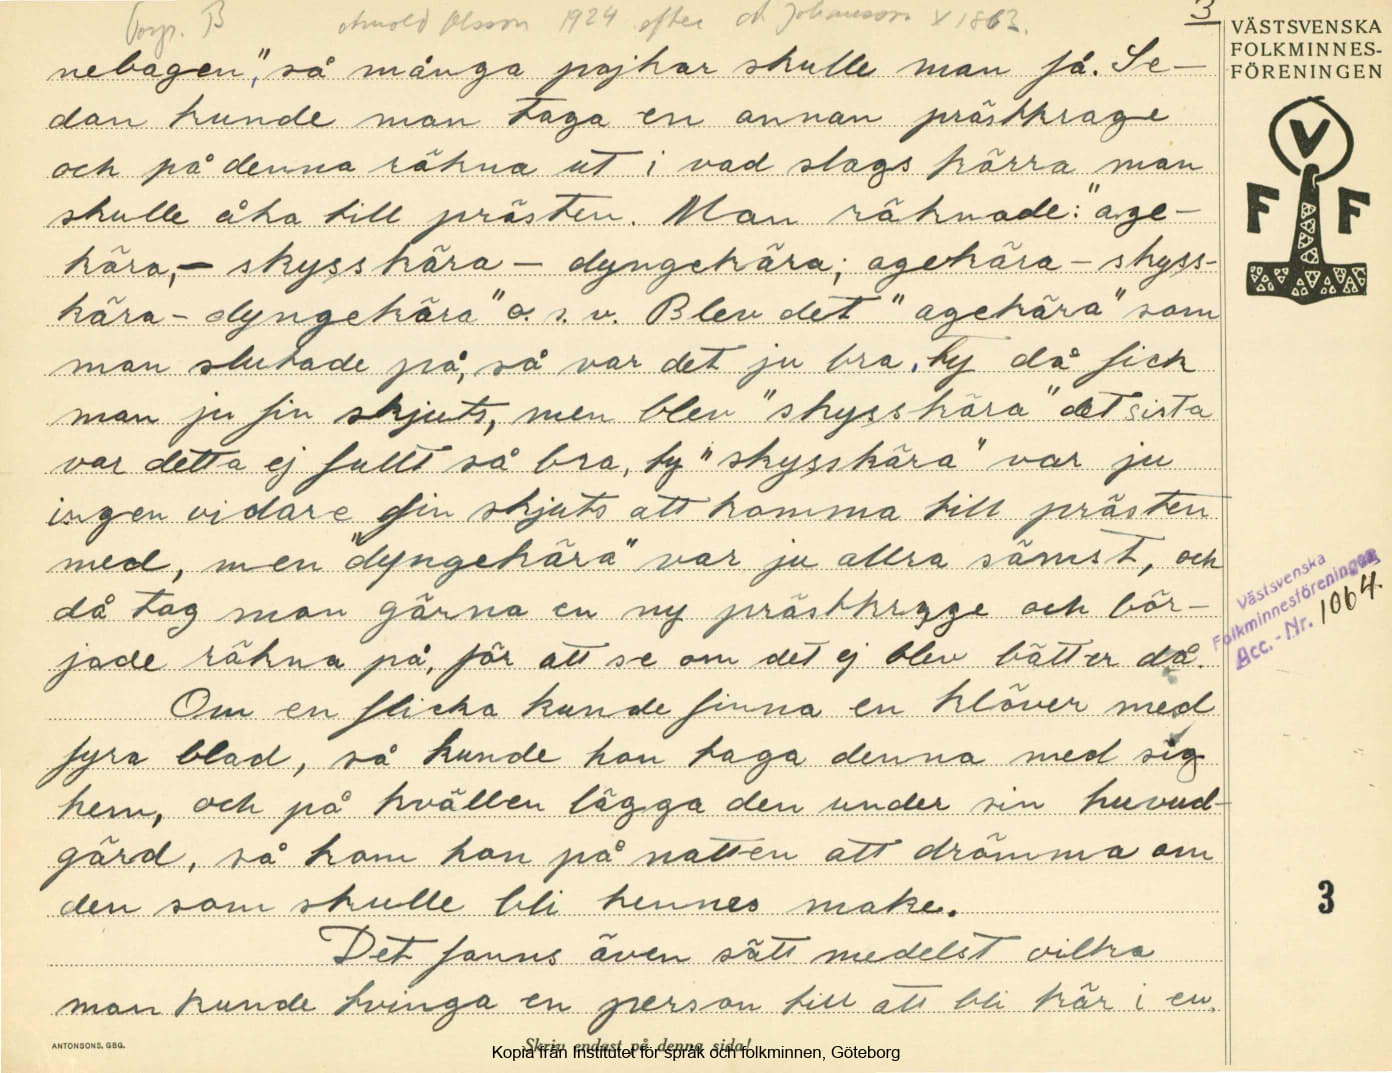 Torp. B Arnold Olsson 1924 efter A Johansson * 1863.
3
nebagen", så många pojkar skulle man få. Se-
dan kunde man taga en annan prästkrage
och på denna räkna ut i vad slags kärra man
skulle åka till prästen. Man räknade: "age-
kära, - skysskära - dyngekära; agekära - skyss-
kära - dyngekära" o. s. v. Blev det "agekära" som
man slutade på, så var det ju bra, ty då fick
man ju fin skjuts, men blev "skysskära" det sista
var detta ej fullt så bra, ty "skysskära" var ju
ingen vidare fin skjuts att komma till prästen
med, men "dyngekära" var ju allra sämst, och
då tog man gärna en ny prästkrage och bör-
jade räkna på, för att se om det ej blev bätter då.
Om en flicka kunde finna en klöver med
fyra blad, så kunde hon taga denna med sig
hem, och på kvällen lägga den under sin huvud-
gärd, så kom hon på natten att drömma om
den som skulle bli hennes make.
Det fanns även sätt medelst vilka
man kunde tvinga en person till att bli kär i en.
VÄSTSVENSKA
FOLKMINNES-
FÖRENINGEN
V
F F
Västsvenska
Folkminnesföreningen
Acc.-Nr. 1064.
3
ANTONSONS, GBG.
Skriv endast på denna sida!
Kopia från Institutet för språk och folkminnen, Göteborg